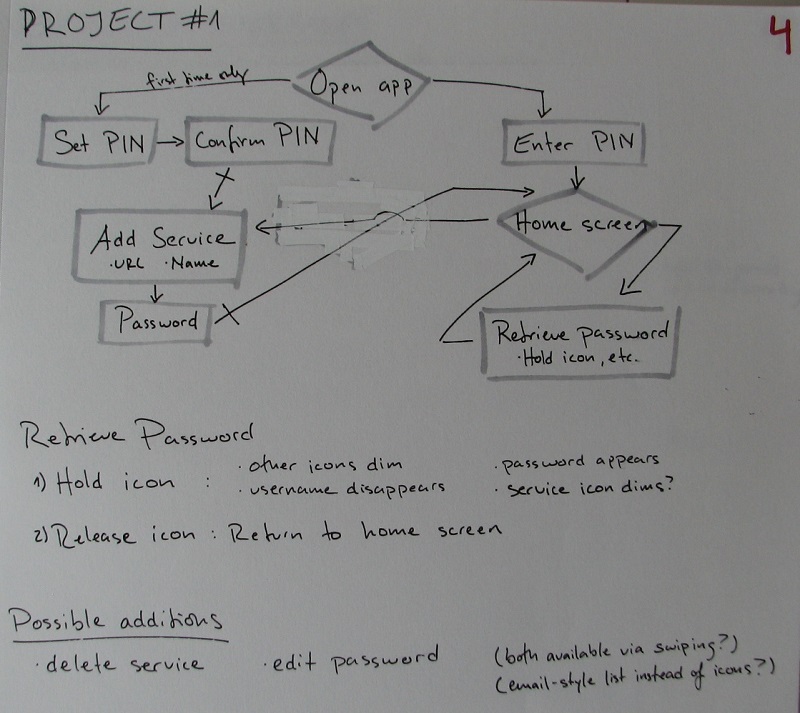 PROJECT #1
4
first time only
Open app
Set PIN
Confirm PIN
Enter PIN
Add Service
·URL ·Name
Home screen
Password
Retrieve password
·Hold icon, etc.
Retrieve Password
1) Hold icon :
· other icons dim
· username disappears
· password appears
· service icon dims?
2) Release icon : Return to home screen
Possible additions
· delete service
· edit password
(both available via swiping?)
(email-style list instead of icons?)